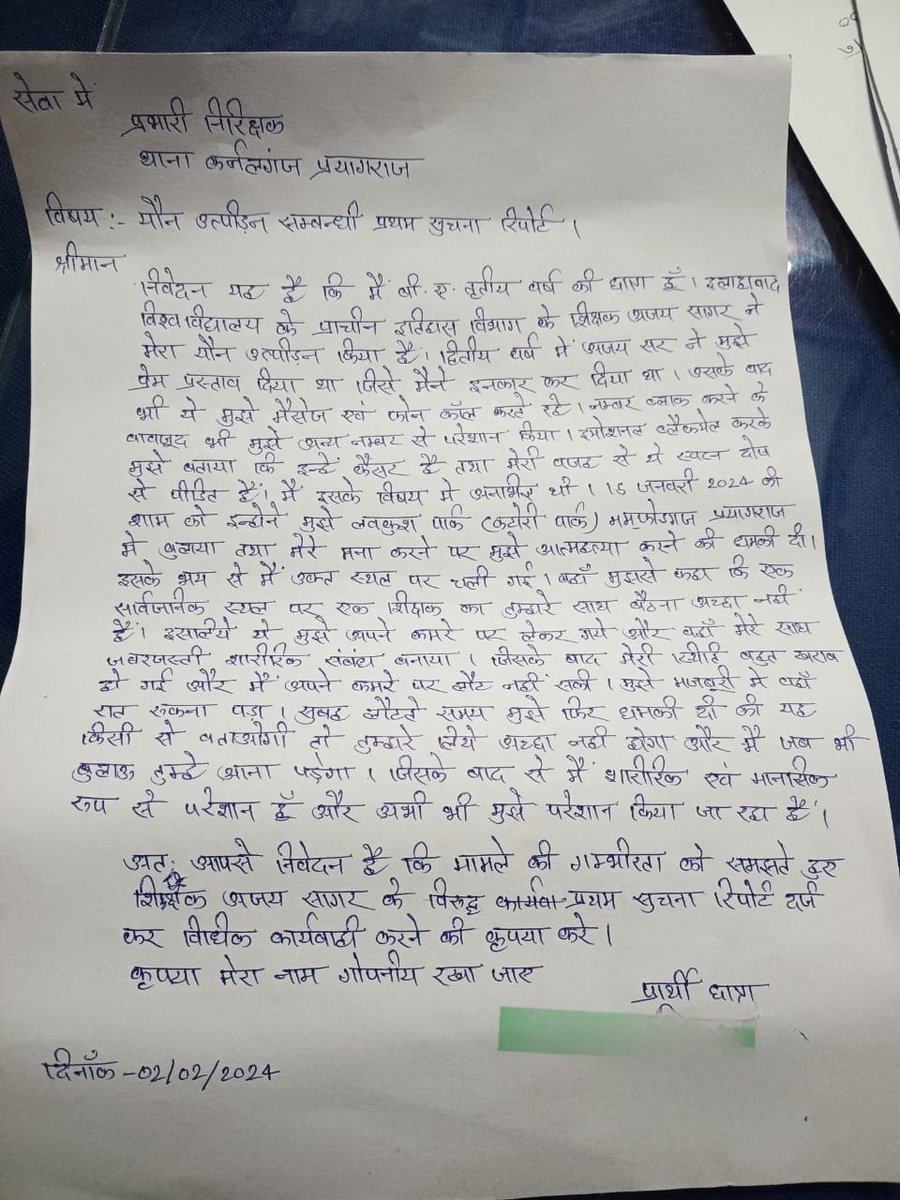 सेवा में
प्रभारी निरिक्षक
थाना कर्नलगंज प्रयागराज
विषय :- यौन उत्पीड़न सम्बन्धी प्रथम सुचना रिपोर्ट ।
श्रीमान
निवेदन यह है कि मैं बी. ए. तृतीय वर्ष की छात्रा हूँ । इलाहाबाद
विश्वविद्यालय के प्राचीन इतिहास विभाग के शिक्षक अजय सागर ने
मेरा यौन उत्पीड़न किया है । द्वितीय वर्ष में अजय सर ने मुझे
प्रेम प्रस्ताव दिया था जिसे मैने इनकार कर दिया था । उसके बाद
भी ये मुझे मैसेज एवं फोन कॉल करते रहे । नम्बर ब्लाक करने के
वावजूद भी मुझे अन्य नम्बर से परेशान किया । इमोशनल ब्लैकमेल करके
मुझे बताया कि इन्हें कैंसर है तथा मेरी वजह से ये स्वप्न दोष
से पीड़ित हैं । मैं इसके विषय में अनभिज्ञ थी । 15 जनवरी 2024 की
शाम को इन्होने मुझे लवकुश पार्क (कटोरी पार्क) ममफोडगंज प्रयागराज
में बुलाया तथा मेरे मना करने पर मुझे आत्महत्या करने की धमकी दी ।
इसके भय से मैं उक्त स्थल पर चली गई । वहाँ मुझसे कहा कि एक
सार्वजनिक स्थल पर एक शिक्षक का तुम्हारे साथ बैठना अच्छा नहीं
है । इसलिये ये मुझे अपने कमरे पर लेकर गये और वहाँ मेरे साथ
जबरजस्ती शारीरिक संबंध बनाया । जिसके बाद मेरी स्थिति बहुत खराब
हो गई और मैं अपने कमरे पर लौट नहीं सकी । मुझे मजबूरी में वहाँ
रात रुकना पड़ा । सुबह लौटते समय मुझे फिर धमकी दी की यह
किसी से बताओगी तो तुम्हारे लिये अच्छा नही होगा और मै जब भी
बुलाऊ तुम्हे आना पड़ेगा । जिसके बाद से मैं शारीरिक एवं मानसिक
रूप से परेशान हूँ और अभी भी मुझे परेशान किया जा रहा है ।
अतः आपसे निवेदन है कि मामले की गम्भीरता को समझते हुए
शिक्षक अजय सागर के विरुद्ध प्रथम सुचना रिपोर्ट दर्ज
कर विधिक कार्यवाही करने की कृपया करे ।
कृपया मेरा नाम गोपनीय रखा जाए
प्रार्थी छात्रा
दिनाँक -02/02/2024